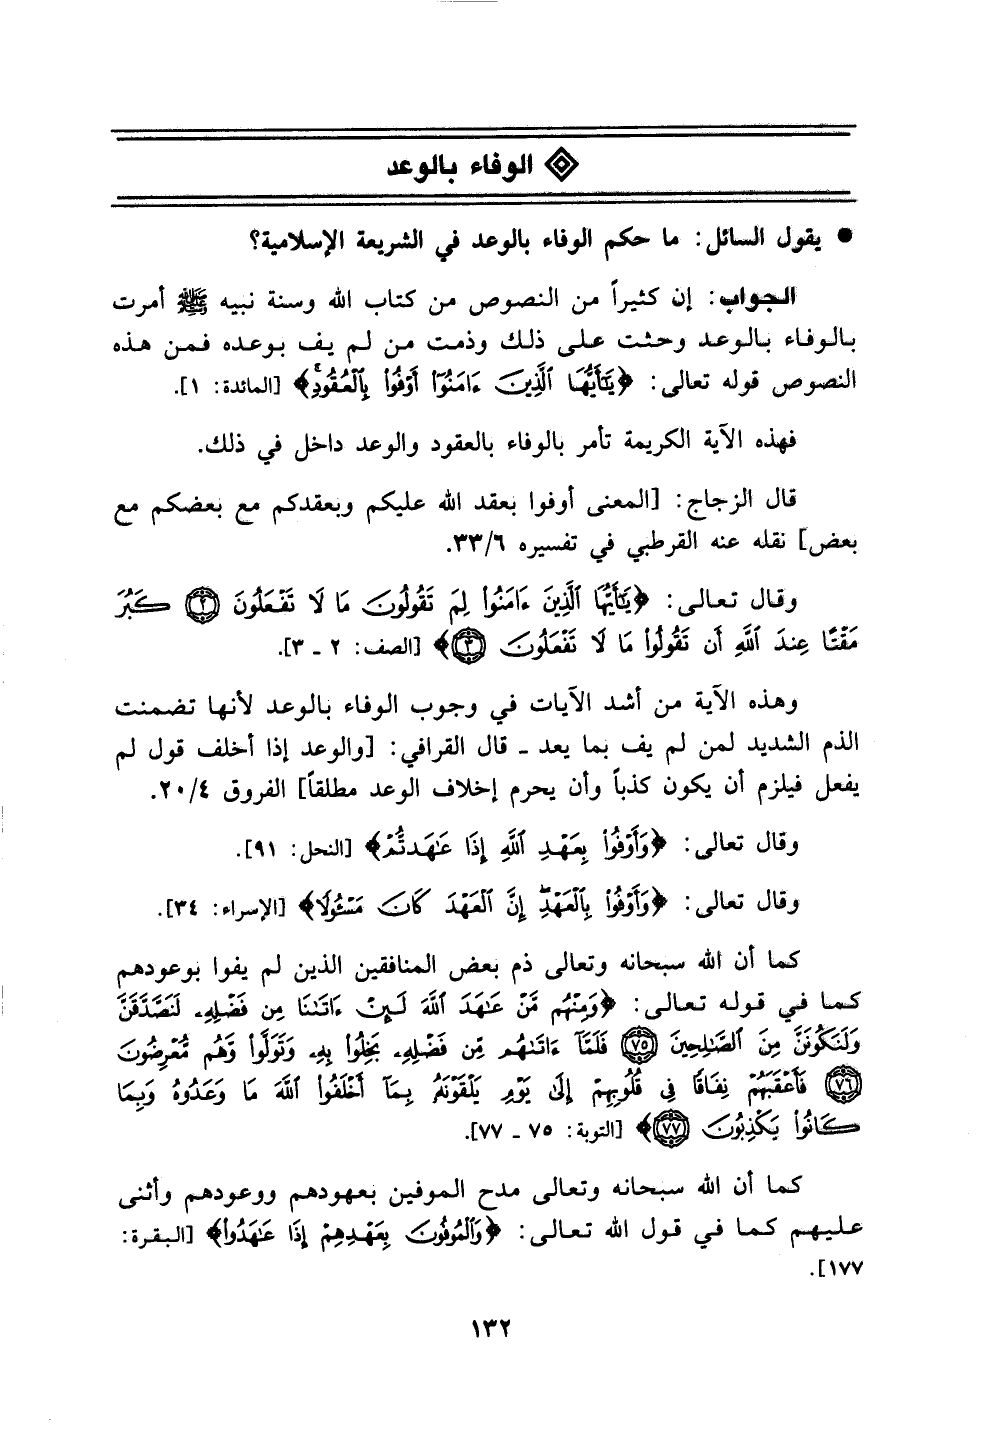 الوفاء بالوعد
● يقول السائل: ما حكم الوفاء بالوعد في الشريعة الإسلامية؟
الجواب: إن كثيراً من النصوص من كتاب الله وسنة نبيه ﷺ أمرت
بالوفاء بالوعد وحثت على ذلك وذمت من لم يف بوعده فمن هذه
النصوص قوله تعالى: ﴿يَٰٓأَيُّهَا ٱلَّذِينَ ءَامَنُوٓاْ أَوۡفُواْ بِٱلۡعُقُودِۚ﴾ [المائدة: ١].
فهذه الآية الكريمة تأمر بالوفاء بالعقود والوعد داخل في ذلك.
قال الزجاج: [المعنى أوفوا بعقد الله عليكم وبعقدكم مع بعضكم مع
بعض] نقله عنه القرطبي في تفسيره ٣٣/٦.
وقال تعالى: ﴿يَٰٓأَيُّهَا ٱلَّذِينَ ءَامَنُواْ لِمَ تَقُولُونَ مَا لَا تَفۡعَلُونَ ٢ كَبُرَ
مَقۡتًا عِندَ ٱللَّهِ أَن تَقُولُواْ مَا لَا تَفۡعَلُونَ ٣﴾ [الصف: ٢ ـ ٣].
وهذه الآية من أشد الآيات في وجوب الوفاء بالوعد لأنها تضمنت
الذم الشديد لمن لم يف بما يعد ـ قال القرافي: [والوعد إذا أخلف قول لم
يفعل فيلزم أن يكون كذباً وأن يحرم إخلاف الوعد مطلقاً] الفروق ٢٠/٤.
وقال تعالى: ﴿وَأَوۡفُواْ بِعَهۡدِ ٱللَّهِ إِذَا عَٰهَدتُّمۡ﴾ [النحل: ٩١].
وقال تعالى: ﴿وَأَوۡفُواْ بِٱلۡعَهۡدِۖ إِنَّ ٱلۡعَهۡدَ كَانَ مَسۡـُٔولًا﴾ [الإسراء: ٣٤].
كما أن الله سبحانه وتعالى ذم بعض المنافقين الذين لم يفوا بوعودهم
كما في قوله تعالى: ﴿وَمِنۡهُم مَّنۡ عَٰهَدَ ٱللَّهَ لَئِنۡ ءَاتَىٰنَا مِن فَضۡلِهِۦ لَنَصَّدَّقَنَّ
وَلَنَكُونَنَّ مِنَ ٱلصَّٰلِحِينَ ٧٥ فَلَمَّآ ءَاتَىٰهُم مِّن فَضۡلِهِۦ بَخِلُواْ بِهِۦ وَتَوَلَّواْ وَّهُم مُّعۡرِضُونَ
٧٦ فَأَعۡقَبَهُمۡ نِفَاقٗا فِي قُلُوبِهِمۡ إِلَىٰ يَوۡمِ يَلۡقَوۡنَهُۥ بِمَآ أَخۡلَفُواْ ٱللَّهَ مَا وَعَدُوهُ وَبِمَا
كَانُواْ يَكۡذِبُونَ ٧٧﴾ [التوبة: ٧٥ ـ ٧٧].
كما أن الله سبحانه وتعالى مدح الموفين بعهودهم ووعودهم وأثنى
عليهم كما في قول الله تعالى: ﴿وَٱلۡمُوفُونَ بِعَهۡدِهِمۡ إِذَا عَٰهَدُواْ﴾ [البقرة:
١٧٧].
١٣٢